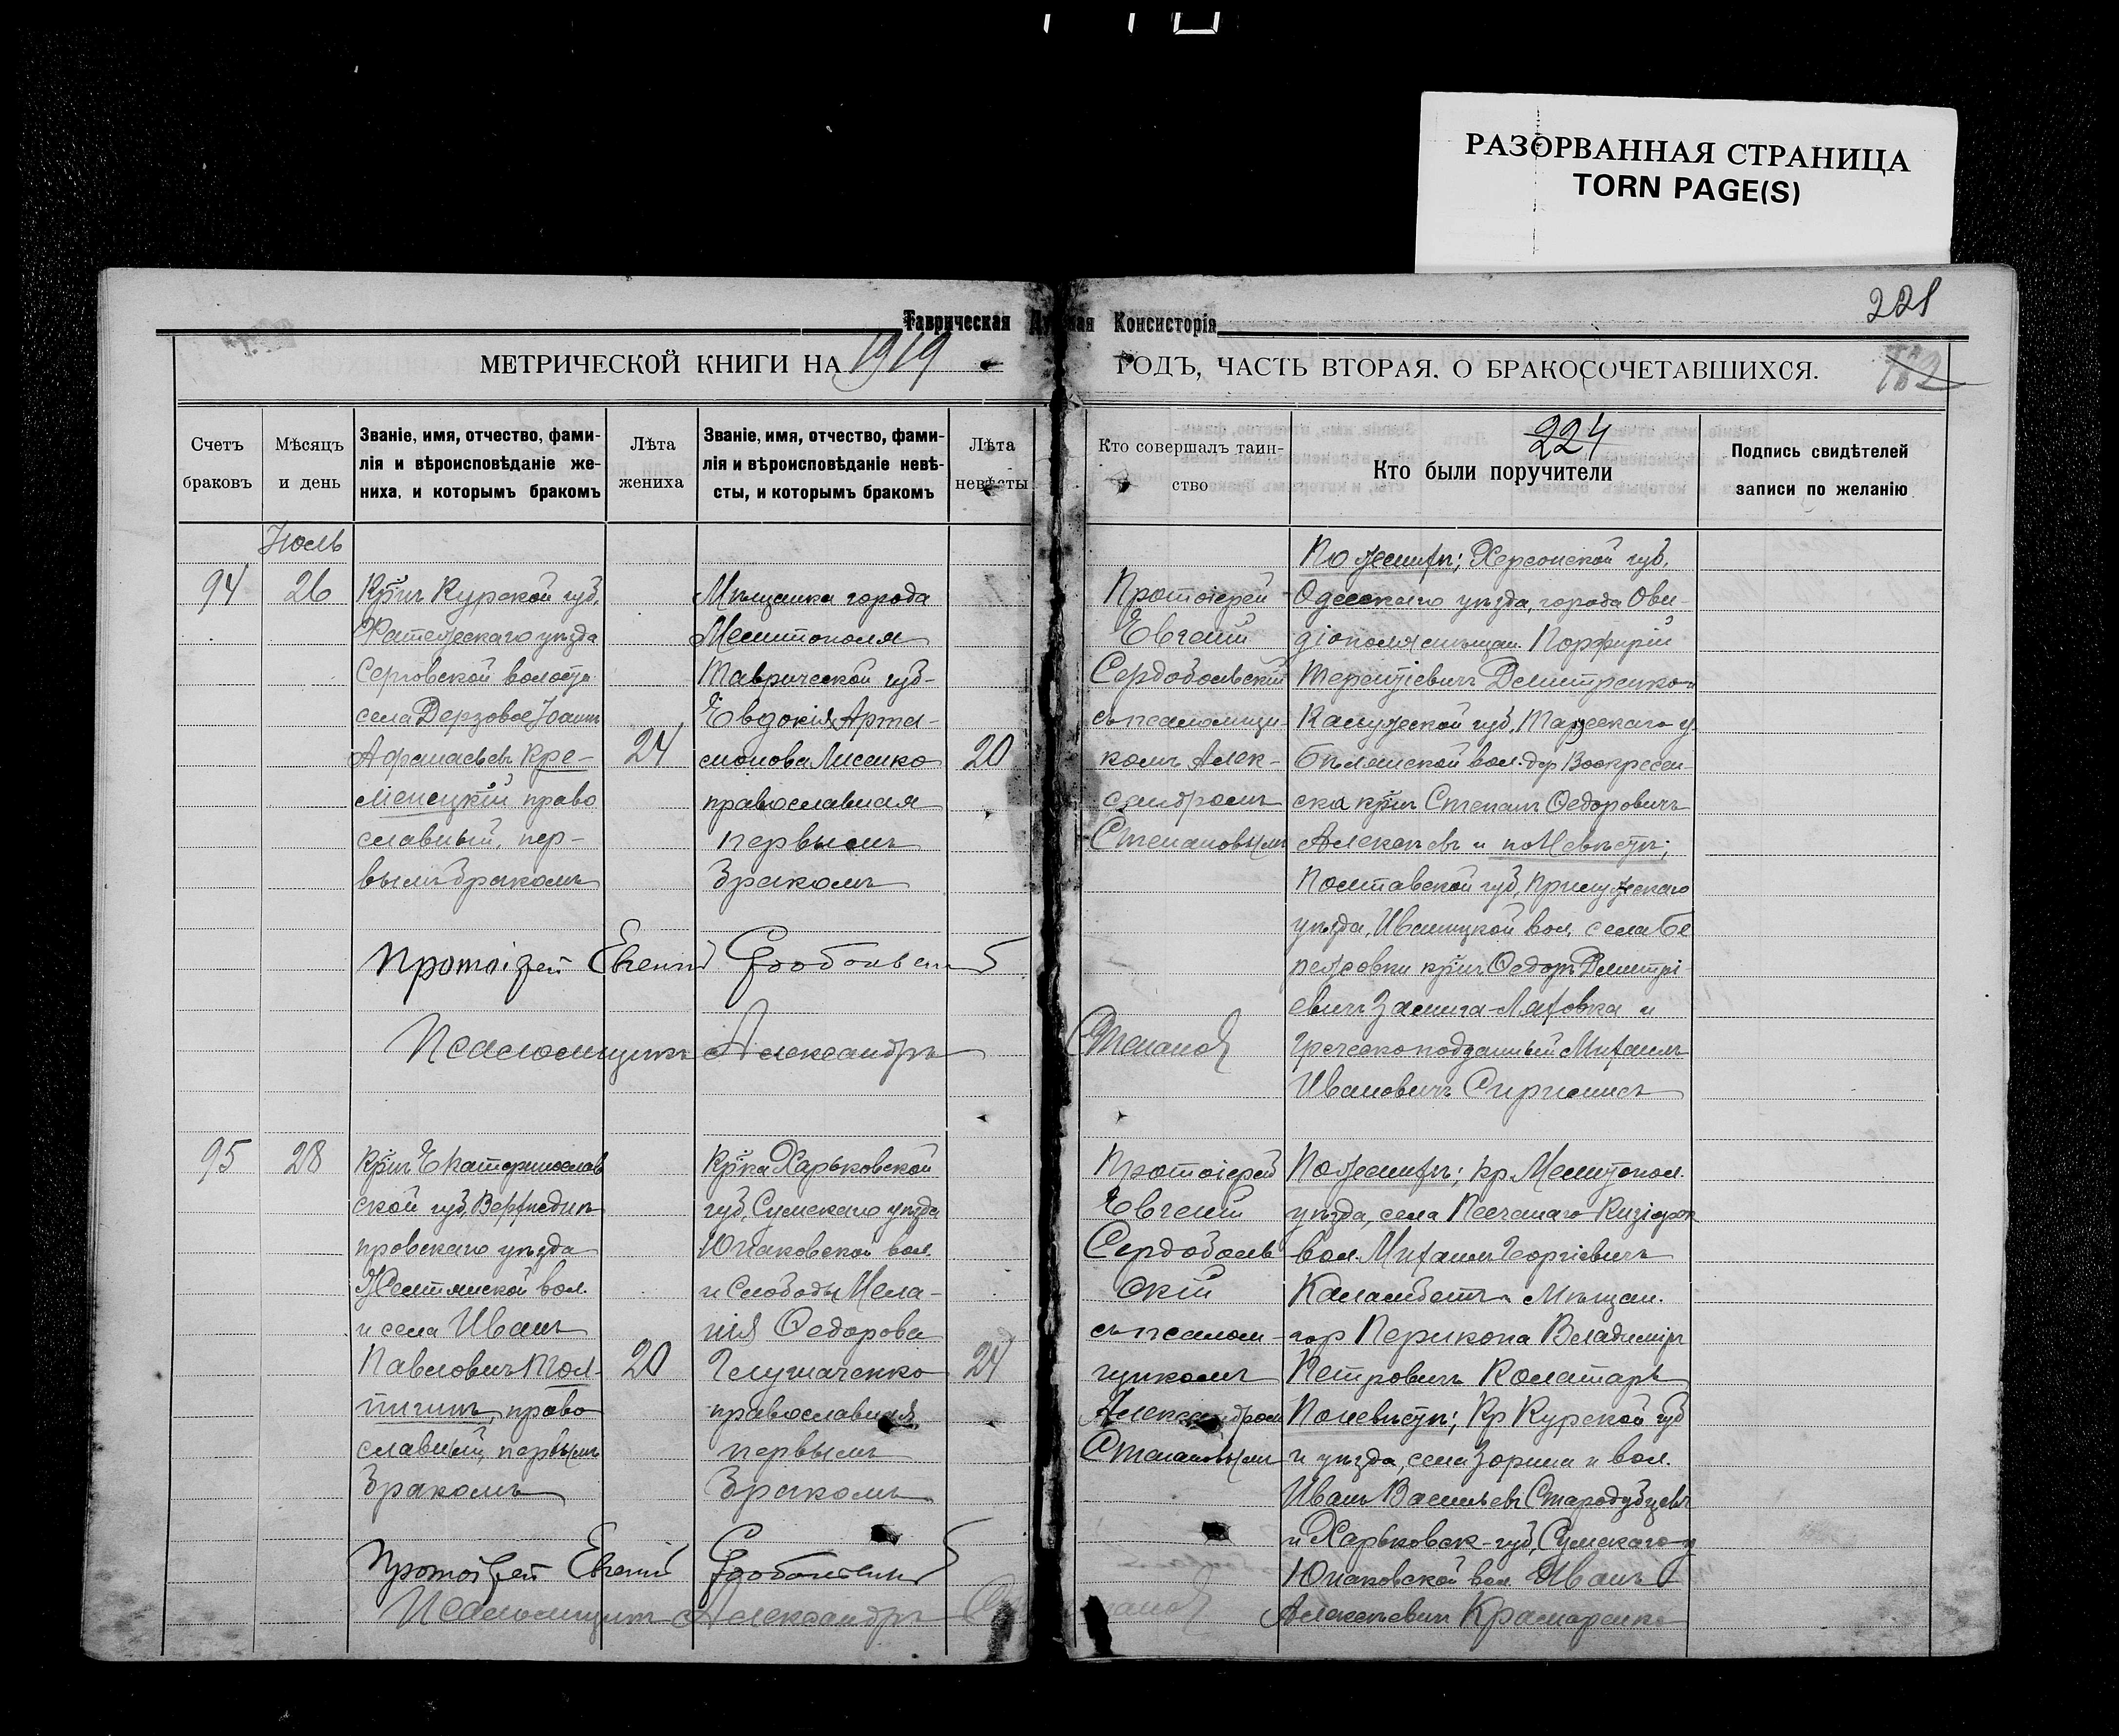 РАЗОРВАННАЯ СТРАНИЦА
TORN PAGE(S)
221
Таврическая Духовная Консисторія
МЕТРИЧЕСКОЙ КНИГИ НА 1919
ГОДЪ, ЧАСТЬ ВТОРАЯ. О БРАКОСОЧЕТАВШИХСЯ.
224
Счетъ
браковъ
Мѣсяцъ
и день
Званіе, имя, отчество, фами-
лія и вѣроисповѣданіе же-
ниха, и которымъ бракомъ
Лѣта
жениха
Званіе, имя, отчество, фами-
лія и вѣроисповѣданіе невѣ-
сты, и которымъ бракомъ
Лѣта
невѣсты
Кто совершалъ таин-
ство
Кто были поручители
Подпись свидѣтелей
записи по желанію
Іюль
94
26
Кр̃нъ Курской губ.
Фатежскаго уѣзда
Сергѣевской волости
села Дерзовое Іоаннъ
Афанасьевъ Кре-
менецкій право
славный, пер-
вымъ бракомъ
24
Мѣщанка города
Мелитополя
Таврической губ-
Евдокія Арта-
монова Лисенко
православная
первымъ
бракомъ
20
Протоіерей
Евгеній
Сердобольскій
съ псаломщи-
комъ Алек-
сандромъ
Степановымъ
По женихѣ; Херсонской губ.
Одесскаго уѣзда, города Ови-
діополя мѣщан. Порфирій
Терентіевичъ Дмитренко и
Калужской губ. Тарусскаго у.
вол. дер Воскресен-
ска кр̃нъ Степанъ Ѳедоровичъ
Алексѣевъ и по Невѣстѣ;
Полтавской губ. Прилужскаго
уѣзда, Иваницкой вол. села Бе
режовки кр̃нъ Ѳедоръ Дмитрі-
евичъ Замига-Ляховка и
Греческоподданный Михаилъ
Ивановичъ Сиригинисъ
Протоіерей Евгеній Сердобольскій
Псаломщикъ Александръ Степановъ
95
28
Кр̃нъ Екатеринослав
ской губ. Верхнеднѣ-
провскаго уѣзда
Желтянской вол.
и села Иванъ
Павловичъ Тол-
тигинъ, право
славный, первымъ
бракомъ
20
Кр̃ка Харьковской
губ. Сумскаго уѣзда
Юнаковской вол.
и слободы Мела-
нія Ѳедорова
Глушаченко
православная
первымъ
бракомъ
24
Протоіерей
Евгеній
Сердоболь
скій
съ псалом-
щикомъ
Александром
Степановымъ
По женихѣ; кр. Мелитопол.
уѣзда, села Песчанаго
вол. Михаилъ Георгіевичъ
Каламбетъ и Мѣщан.
гор Перикопа Владиміръ
Петровичъ Коматаръ
По невѣстѣ; Кр Курской губ
и уѣзда, села Зорина и вол.
Иванъ Васильевъ Стародубцевъ
и Харьковск-губ. Сумскаго у
Юнаковской вол Иванъ
Алексѣевичъ Крамаренко
Протоіерей Евгеній Сердобольскій
Псаломщикъ Александръ Степановъ